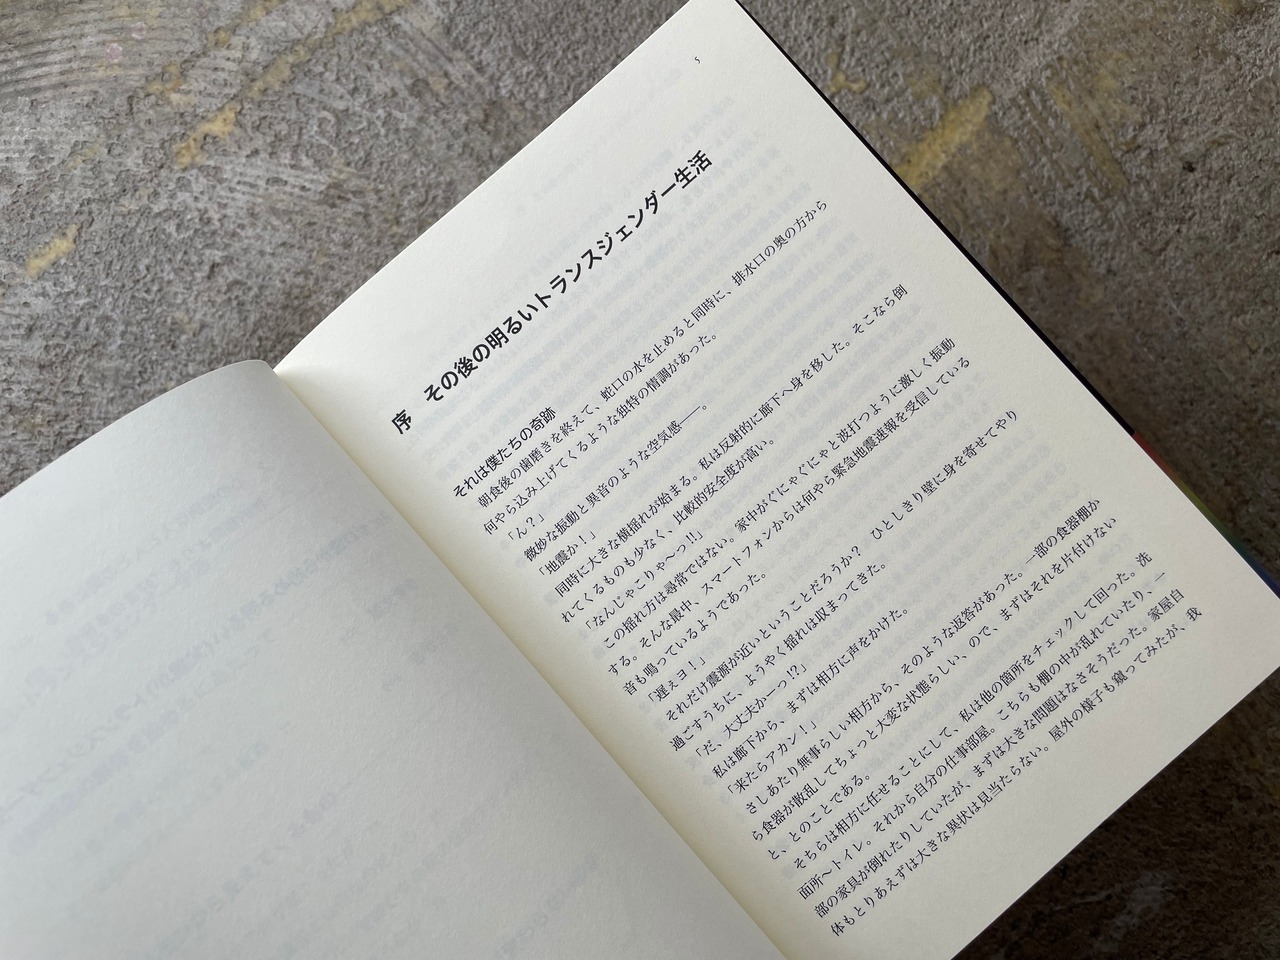 5
序　その後の明るいトランスジェンダー生活
それは僕たちの奇跡
朝食後の歯磨きを終えて、蛇口の水を止めると同時に、排水口の奥の方から
何やら込み上げてくるような独特の情調があった。
「ん？」
微妙な振動と異音のような空気感――。
「地震か！」
同時に大きな横揺れが始まる。私は反射的に廊下へ身を移した。そこなら倒
れてくるものも少なく、比較的安全度が高い。
「なんじゃこりゃ〜っ!!」
この揺れ方は尋常ではない。家中がぐにゃぐにゃと波打つように激しく振動
する。そんな最中、スマートフォンからは何やら緊急地震速報を受信している
音も鳴っているようであった。
「遅ぇョ！」
それだけ震源が近いということだろうか？　ひとしきり壁に身を寄せてやり
過ごすうちに、ようやく揺れは収まってきた。
「だ、大丈夫かーっ!?」
私は廊下から、まずは相方に声をかけた。
「来たらアカン！」
さしあたり無事らしい相方から、そのような返答があった。一部の食器棚か
ら食器が散乱してちょっと大変な状態らしい、ので、まずはそれを片付けない
と、とのことである。
そちらは相方に任せることにして、私は他の箇所をチェックして回った。洗
面所〜トイレ。それから自分の仕事部屋。こちらも棚の中が乱れていたり、一
部の家具が倒れたりしていたが、まずは大きな問題はなさそうだった。家屋自
体もとりあえずは大きな異状は見当たらない。屋外の様子も窺ってみたが、我